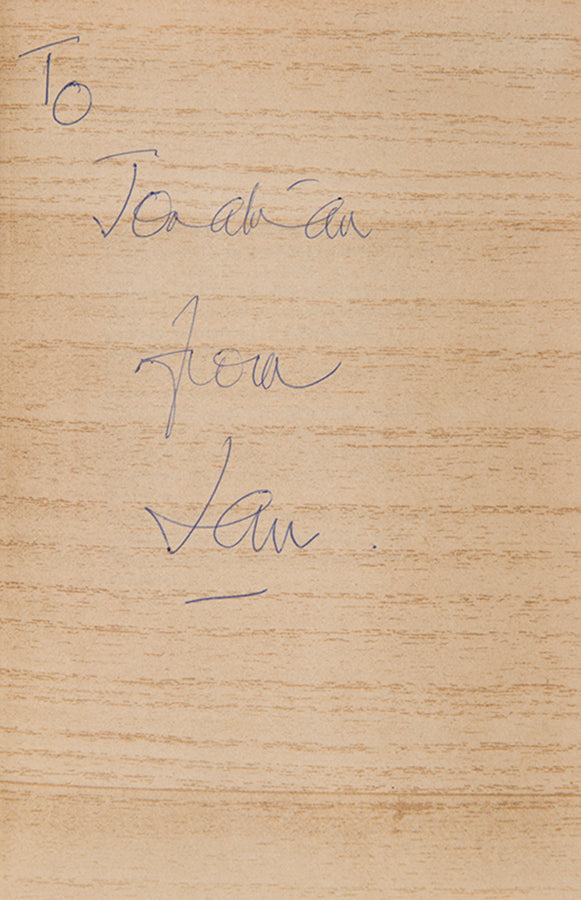 To
Jonathan
from
Ian.